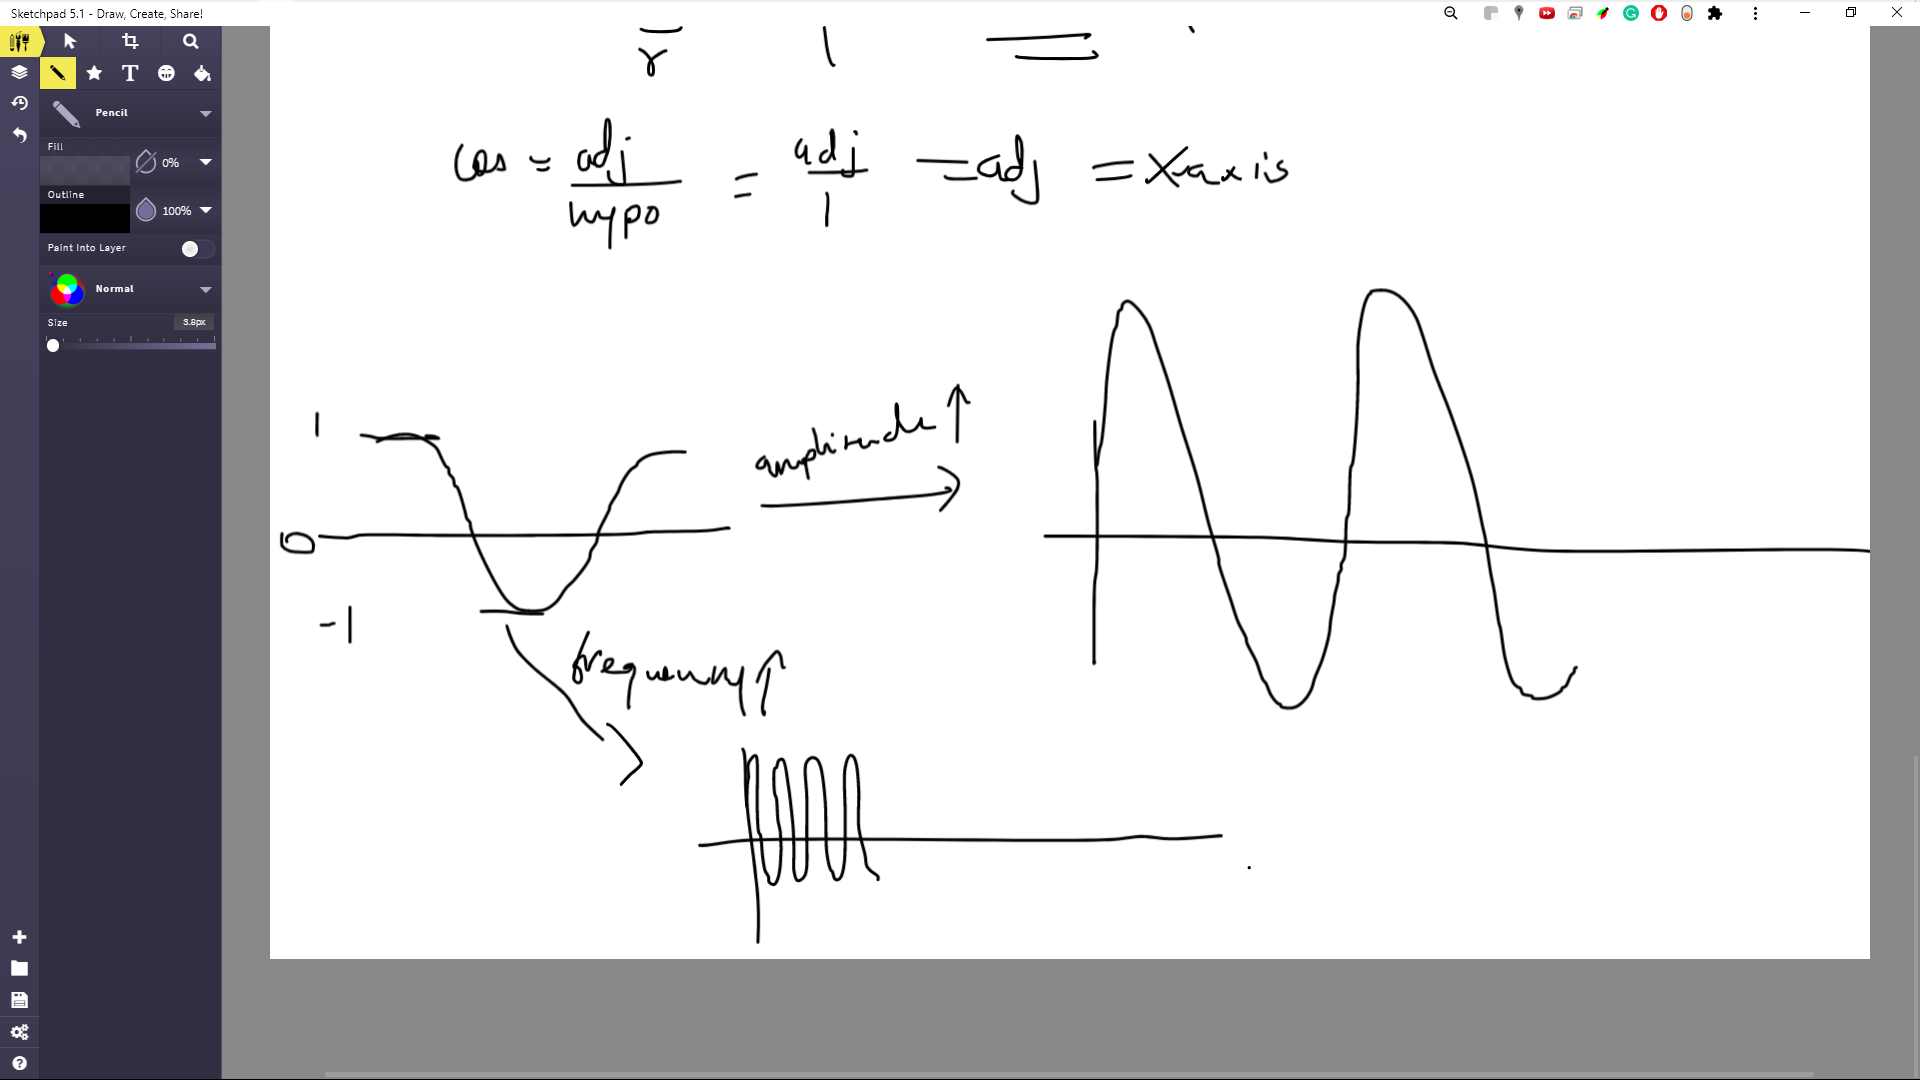 Sketchpad 5.1 - Draw, Create, Share!
Pencil
Fill
0%
Outline
100%
Paint Into Layer
Normal
Size 3.8px
r 1
cos = adj/hypo = adj/1 = adj = X-axis
1
amplitude ↑
0
-1
frequency ↑